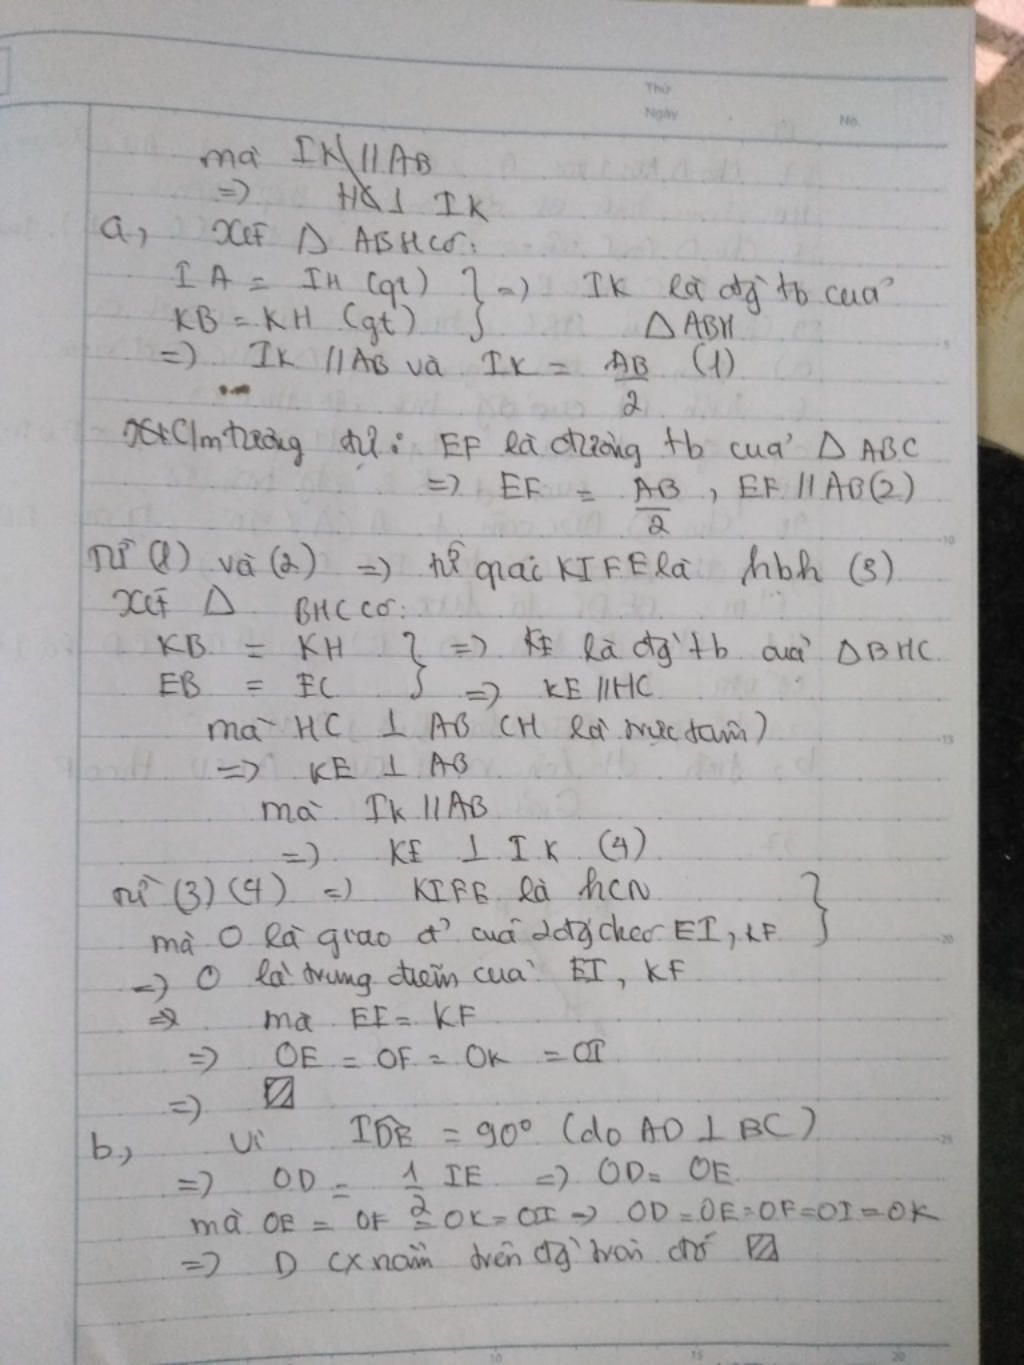 Thứ
Ngày
No.
mà IK // AB
=> HC ⊥ IK
a, Xét Δ ABH có:
IA = IH (gt) } => IK là đg` tb của
KB = KH (gt) } Δ ABH
=> IK // AB và IK = AB/2 (1)
C/m tương tự: EF là đường tb của Δ ABC
=> EF = AB/2, EF // AB (2)
Từ (1) và (2) => tứ giác KIFE là hbh (3)
Xét Δ BHC có:
KB = KH } => KE là đg` tb của Δ BHC
EB = EC } => KE // HC
mà HC ⊥ AB (H là trực tâm)
=> KE ⊥ AB
mà IK // AB
=> KE ⊥ IK (4)
Từ (3) (4) => KIFE là hcn }
mà O là giao đ' của 2 đg chéo EI, KF
=> O là trung điểm của EI, KF
=> mà EI = KF
=> OE = OF = OK = OI
=>
b, Vì IDE = 90° (do AD ⊥ BC)
=> OD = 1/2 IE => OD = OE
mà OE = OF = OK = OI => OD = OE = OF = OI = OK
=> D cx nằm trên đg` tròn đó
5
10
15
20
25
10
15
20